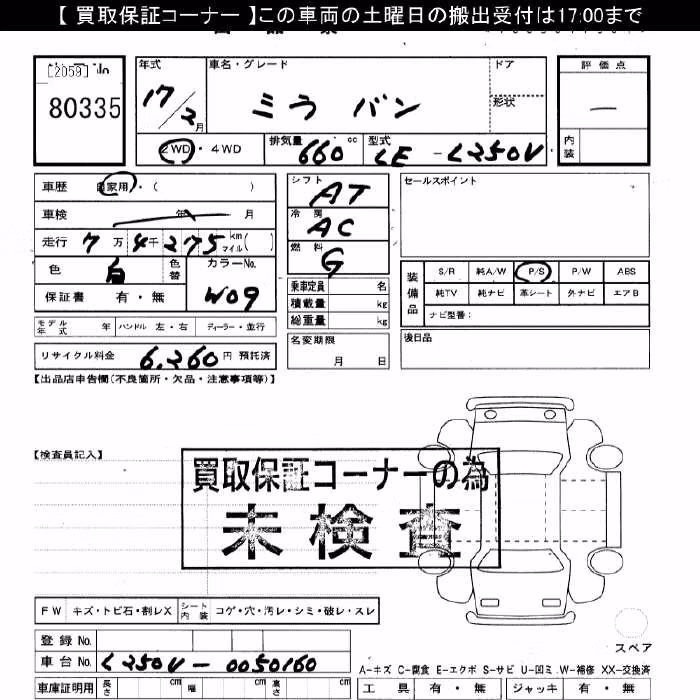 【 買取保証コーナー 】この車両の土曜日の搬出受付は17:00まで
[2059]
80335
年式 17/2月
車名・グレード ミラ バン
ドア
形状
評価点 ―
内装
2WD・4WD
排気量 660 cc
型式 LE-L250V
車歴 自家用・( )
車検 年 月
走行 7万4千275 km マイル( )
色 白 色替
カラーNo. W09
保証書 有・無
シフト AT
冷房 AC
燃料 G
乗車定員 名
積載量 kg
総重量 kg
セールスポイント
装備品 S/R 純A/W P/S P/W ABS
純TV 純ナビ 革シート 外ナビ エアB
ナビ型番:
モデル年式 年 ハンドル 左・右 ディーラー・並行
名変期限 月 日
後日品
リサイクル料金 6,260 円 預託済
【出品店申告欄(不良箇所・欠品・注意事項等)】
【検査員記入】
買取保証コーナーの為
未検査
FW キズ・トビ石・割レX シート内装 コゲ・穴・汚レ・シミ・破レ・スレ
登録No.
車台No. L250V-0050160
スペア
A-キズ C-腐食 E-エクボ S-サビ U-凹ミ W-補修 XX-交換済
車庫証明用 長さ cm 幅 cm 高さ cm
工具 有・無 ジャッキ 有・無